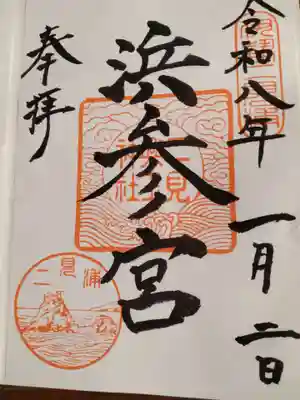 令和八年 一月 二日
浜参宮
二見
神社
奉拝
二見浦